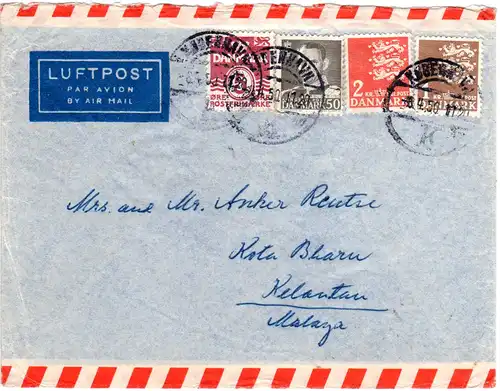 LUFTPOST
PAR AVION
BY AIR MAIL
KØBENHAVN
DANMARK
12
ØRE
POSTFRIMÆRKE
50
2
KR.
DANMARK
1
KØBENHAVN
K
Mrs. and Mr. Anker Rentse
Kota Bharu
Kelantan
Malaya